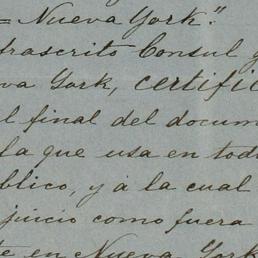 = Nueva York".
frascrito Consul g
va York, certific
l final del docum
la que usa en tod
blico, y à la cual
juicio como fuera
te en Nueva York